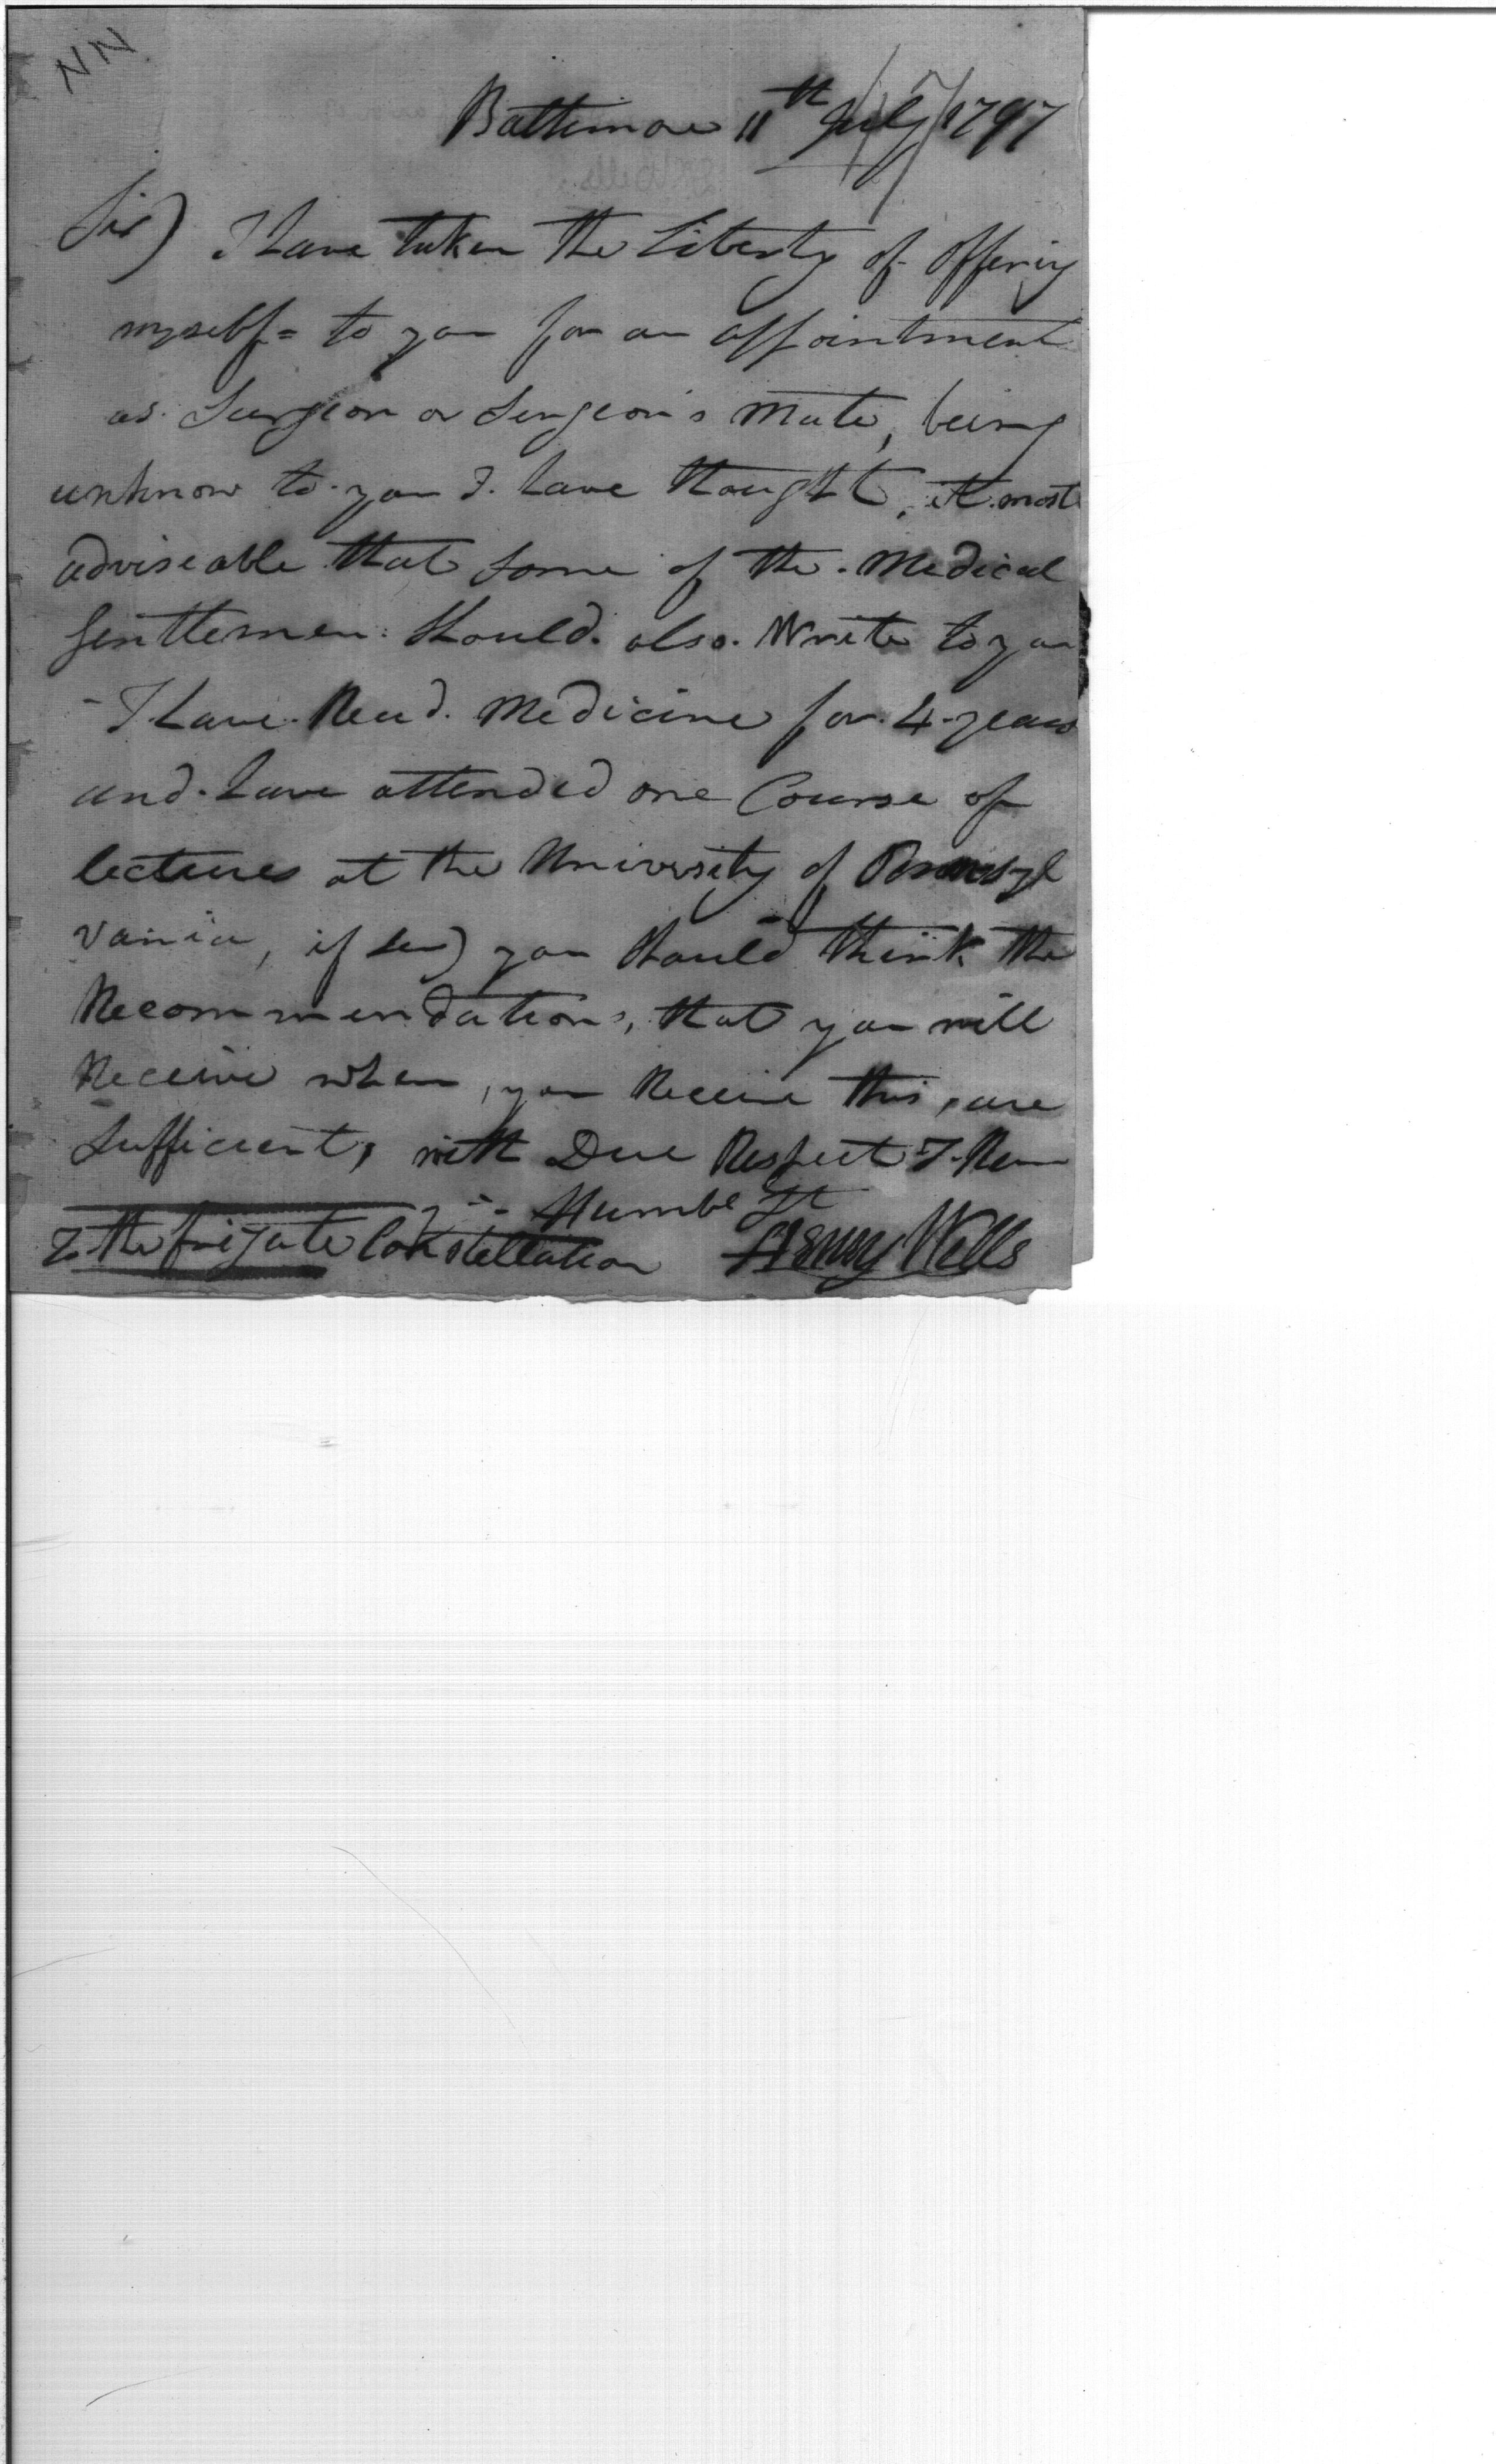 NN
Baltimore 11th July 1797
Sir) I have taken the Liberty of offering
myself= to you for an appointment
as Surgeon or Surgeon's Mate, being
unknow to you I have thought, it most
adviseable that some of the Medical
Gentlemen should also Write to you
- I have Read Medicine for 4 years
and have attended one Course of
lectures at the University of Pennsyl
vania, if Sir) you should think the
Recommendations, that you will
Receive when, you Receive this, are
Sufficient, with Due Respect I Rem
Humbl St
to the frigate Constellation Henry Wells